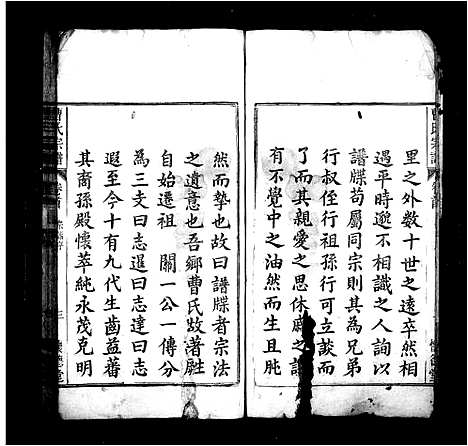 里之外數十世之遠卒然相
遇平時邈不相識之人詢以
譜牒苟屬同宗則其為兄弟
行叔侄行祖孫行可立談而
了而其親愛之思休戚之誼
有不覺中之油然而生且肫
然而摯也故曰譜牒者宗法
之遺意也吾鄉曹氏
自始遷祖 關一公一傳分
為三支曰志暹曰志達曰志
遐至今十有九代生齒益蕃
其裔孫殿懷萃純永茂克明
曹氏宗譜 卷首 三